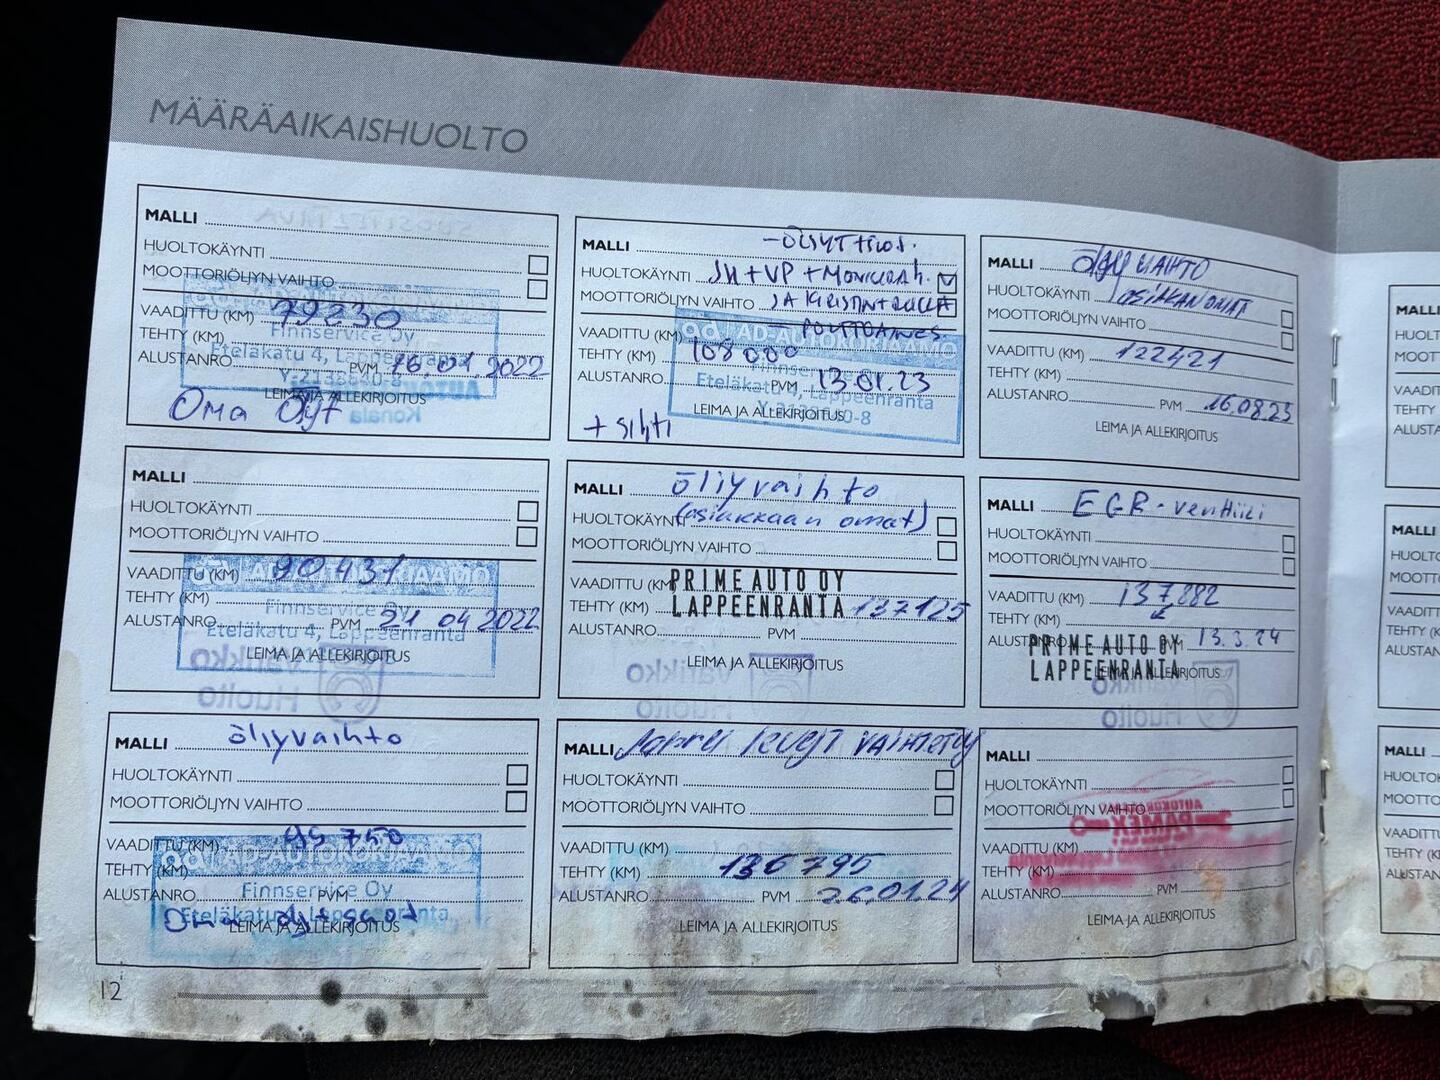 MÄÄRÄAIKAISHUOLTO
MALLI
HUOLTOKÄYNTI
MOOTTORIÖLJYN VAIHTO
VAADITTU (KM) 79230
TEHTY (KM) Finnservice Oy
Eteläkatu 4, Lappeenranta
ALUSTANRO PVM 16.01.2022
Y-2138840-8
LEIMA JA ALLEKIRJOITUS
Oma Öljyt
MALLI
HUOLTOKÄYNTI
MOOTTORIÖLJYN VAIHTO
AD-AUTOKORJAAMO
VAADITTU (KM) 90431
TEHTY (KM) Finnservice Oy
ALUSTANRO PVM 24 04 2022
Eteläkatu 4, Lappeenranta
LEIMA JA ALLEKIRJOITUS
MALLI öljyvaihto
HUOLTOKÄYNTI
MOOTTORIÖLJYN VAIHTO
VAADITTU (KM) 99 750
AD-AUTOKORJAAMO
TEHTY (KM)
Finnservice Oy
ALUSTANRO PVM
Eteläkatu 4, Lappeenranta
Oma
LEIMA JA ALLEKIRJOITUS
12
MALLI
HUOLTOKÄYNTI JH+VP+
MOOTTORIÖLJYN VAIHTO JA
VAADITTU (KM)
AD-AUTOKORJAAMO
TEHTY (KM) 108000
Finnservice Oy
ALUSTANRO PVM 13.01.23
Eteläkatu 4, Lappeenranta
LEIMA JA ALLEKIRJOITUS
MALLI öljyvaihto
HUOLTOKÄYNTI (asiakkaan omat)
MOOTTORIÖLJYN VAIHTO
VAADITTU (KM) PRIME AUTO OY
TEHTY (KM) LAPPEENRANTA 137125
ALUSTANRO PVM
LEIMA JA ALLEKIRJOITUS
MALLI
HUOLTOKÄYNTI
MOOTTORIÖLJYN VAIHTO
VAADITTU (KM)
TEHTY (KM) 136795
ALUSTANRO PVM 26.01.24
LEIMA JA ALLEKIRJOITUS
MALLI VAIHTO
HUOLTOKÄYNTI
MOOTTORIÖLJYN VAIHTO
VAADITTU (KM) 122421
TEHTY (KM)
ALUSTANRO PVM 16.08.23
LEIMA JA ALLEKIRJOITUS
MALLI EGR-venttiili
HUOLTOKÄYNTI
MOOTTORIÖLJYN VAIHTO
VAADITTU (KM) 137882
TEHTY (KM)
ALUSTANRO PVM 13.3.24
PRIME AUTO OY
LAPPEENRANTA
LEIMA JA ALLEKIRJOITUS
MALLI
HUOLTOKÄYNTI
MOOTTORIÖLJYN VAIHTO
VAADITTU (KM)
TEHTY (KM)
ALUSTANRO PVM
LEIMA JA ALLEKIRJOITUS
MALLI
MALLI
MALLI